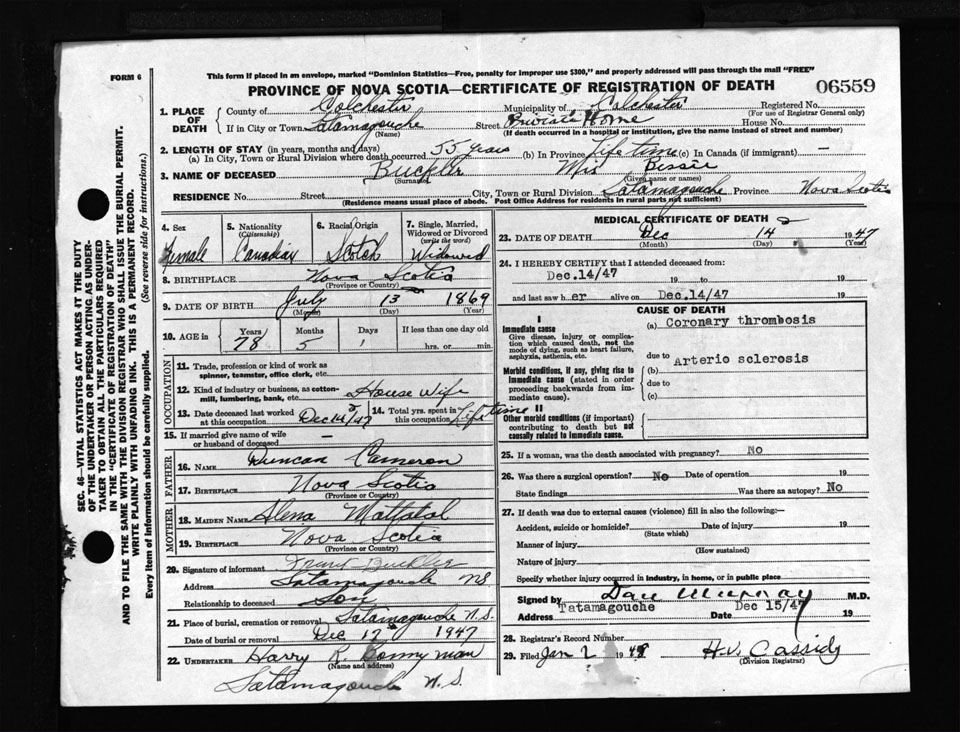 This form if placed in an envelope, marked "Dominion Statistics—Free, penalty for improper use $300," and properly addressed will pass through the mail "FREE"
FORM 6
PROVINCE OF NOVA SCOTIA—CERTIFICATE OF REGISTRATION OF DEATH
06559
1. PLACE OF DEATH
County of Colchester Municipality of Colchester Registered No.
(For use of Registrar General only)
If in City or Town Tatamagouche Street Private Home House No.
(Name) (If death occurred in a hospital or institution, give the name instead of street and number)
2. LENGTH OF STAY (in years, months and days)
(a) In City, Town or Rural Division where death occurred 55 years (b) In Province Life time (c) In Canada (if immigrant) —
3. NAME OF DECEASED Buckler Mrs Bessie
(Surname) (Given name or names)
RESIDENCE No. Street City, Town or Rural Division Tatamagouche Province Nova Scotia
(Residence means usual place of abode. Post Office Address for residents in rural parts not sufficient)
4. Sex Female
5. Nationality (Citizenship) Canadian
6. Racial Origin Scotch
7. Single, Married, Widowed or Divorced (write the word) Widowed
8. BIRTHPLACE Nova Scotia
(Province or Country)
9. DATE OF BIRTH July 13 1869
(Month) (Day) (Year)
10. AGE in Years 78 Months 5 Days 1 If less than one day old
hrs. or min.
OCCUPATION
11. Trade, profession or kind of work as
spinner, teamster, office clerk, etc.
12. Kind of industry or business, as cotton-
mill, lumbering, bank, etc. House wife
13. Date deceased last worked
at this occupation Dec 14/47
14. Total yrs. spent in
this occupation Life time
15. If married give name of wife
or husband of deceased —
FATHER
16. NAME Duncan Cameron
17. BIRTHPLACE Nova Scotia
(Province or Country)
MOTHER
18. MAIDEN NAME Mattatal
19. BIRTHPLACE Nova Scotia
(Province or Country)
20. Signature of informant Buckler
Address Tatamagouche NS
Relationship to deceased Son
21. Place of burial, cremation or removal Tatamagouche N.S.
Date of burial or removal Dec 17 1947
22. UNDERTAKER Harry R. Bonnyman
(Name and address)
Tatamagouche N.S.
MEDICAL CERTIFICATE OF DEATH
23. DATE OF DEATH Dec 14 1947
(Month) (Day) (Year)
24. I HEREBY CERTIFY that I attended deceased from:
Dec.14/47 19 to 19
and last saw her alive on Dec.14/47 19
CAUSE OF DEATH
I
Immediate cause
Give disease, injury or complica-
tion which caused death, not the
mode of dying, such as heart failure,
asphyxia, asthenia, etc.
(a) Coronary thrombosis
due to
Morbid conditions, if any, giving rise to
immediate cause (stated in order
proceeding backwards from im-
mediate cause).
(b) Arterio sclerosis
due to
(c)
II
Other morbid conditions (if important)
contributing to death but not
causally related to immediate cause.
25. If a woman, was the death associated with pregnancy? No
26. Was there a surgical operation? No Date of operation 19
State findings Was there an autopsy? No
27. If death was due to external causes (violence) fill in also the following:—
Accident, suicide or homicide? Date of injury 19
(State which)
Manner of injury
(How sustained)
Nature of injury
Specify whether injury occurred in industry, in home, or in public place
Signed by Dan Murray M.D.
Address Tatamagouche Date Dec 15/47 19
28. Registrar's Record Number
29. Filed Jan 2 1948 H.V. Cassidy
(Division Registrar)
SEC. 46—VITAL STATISTICS ACT MAKES IT THE DUTY
OF THE UNDERTAKER OR PERSON ACTING AS UNDER-
TAKER TO OBTAIN ALL THE PARTICULARS REQUIRED
IN THE "CERTIFICATE OF REGISTRATION OF DEATH"
AND TO FILE THE SAME WITH THE DIVISION REGISTRAR WHO SHALL ISSUE THE BURIAL PERMIT.
WRITE PLAINLY WITH UNFADING INK. THIS IS A PERMANENT RECORD.
Every item of information should be carefully supplied. (See reverse side for instructions.)